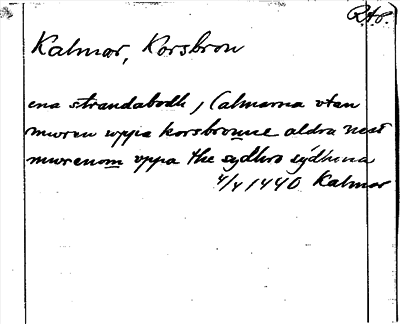 RAp.
Kalmar, Korsbron
ena strandabodh, Calmarna vtan
muren uppa korsbronne aldra nest
murenom vppa the sydhro sydhena
4/4 1440 Kalmar